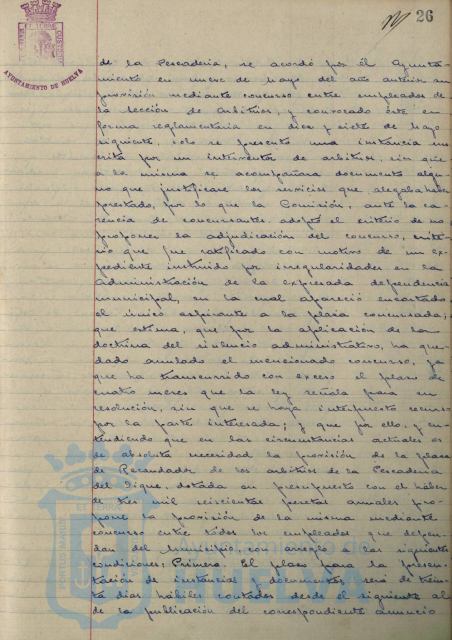 26
AYUNTAMIENTO DE HUELVA
de la Pescadería, se acordó por él Ayunta-
miento en nueve de Mayo del año anterior su
provisión mediante concurso entre empleados de
la Sección de Arbitrios, y convocado éste en
forma reglamentaria en diez y siete de Mayo
siguiente, solo se presentó una instancia sus-
crita por un interventor de arbitrios, sin que
a la misma se acompañara documento algu-
no que justificase los servicios que alegaba haber
prestado, por lo que la Comisión, ante la ca-
rencia de concursantes adoptó el criterio de no
proponer la adjudicación del concurso, crite-
rio que fue ratificado con motivo de un ex-
pediente instruido por irregularidades en la
Administración de la expresada dependencia
municipal, en la cual apareció encartado
el único aspirante a la plaza concursada;
que estima, que por la aplicación de la
doctrina del silencio administrativo, ha que-
dado anulado el mencionado concurso, ya
que ha transcurrido con exceso el plazo de
cuatro meses que la ley señala para su
resolución, sin que se haya interpuesto recurso
por la parte interesada; y que por ello, y en-
tendiendo que en las circunstancias actuales es
de absoluta necesidad la provisión de la plaza
de Recaudador de los arbitrios de la Pescadería
del Dique, dotada en presupuesto con el haber
de tres mil seiscientas pesetas anuales pro-
pone la provisión de la misma mediante
concurso entre todos los empleados que depen-
dan del Municipio, con arreglo a las siguientes
condiciones: Primera. El plazo para la presen-
tación de instancias y documentos, será de trein-
ta días hábiles contados desde el siguiente al
de la publicación del correspondiente anuncio